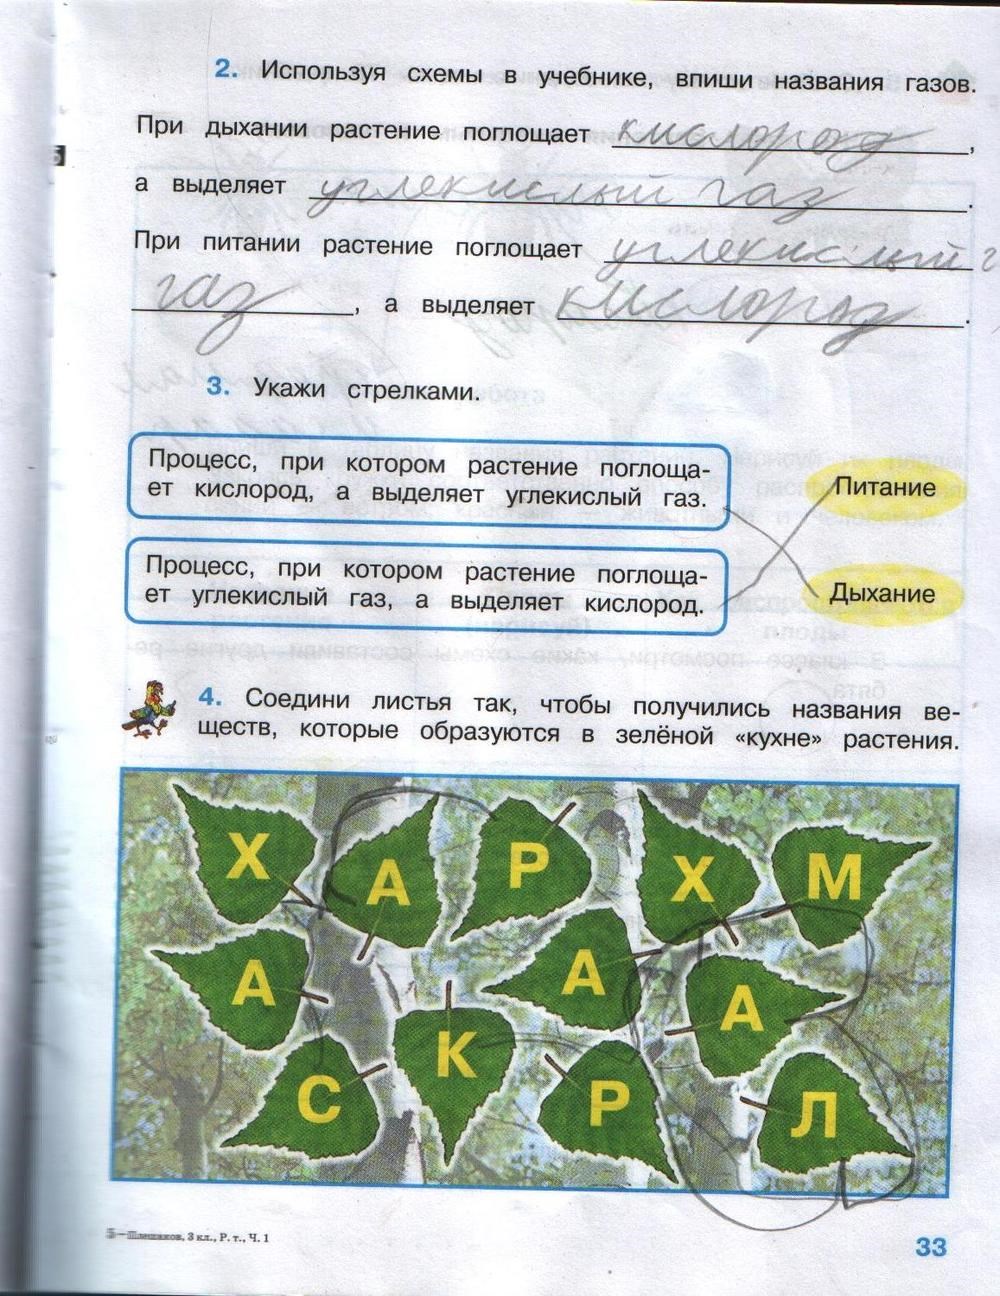 2. Используя схемы в учебнике, впиши названия газов.
При дыхании растение поглощает кислород,
а выделяет углекислый газ.
При питании растение поглощает углекислый г
газ, а выделяет кислород.
3. Укажи стрелками.
Процесс, при котором растение поглоща-
ет кислород, а выделяет углекислый газ.
Питание
Процесс, при котором растение поглоща-
ет углекислый газ, а выделяет кислород.
Дыхание
4. Соедини листья так, чтобы получились названия ве-
ществ, которые образуются в зелёной «кухне» растения.
Х А Р Х М
А А А
С К Р Л
5—Плешаков, 3 кл., Р. т., Ч. 1
33